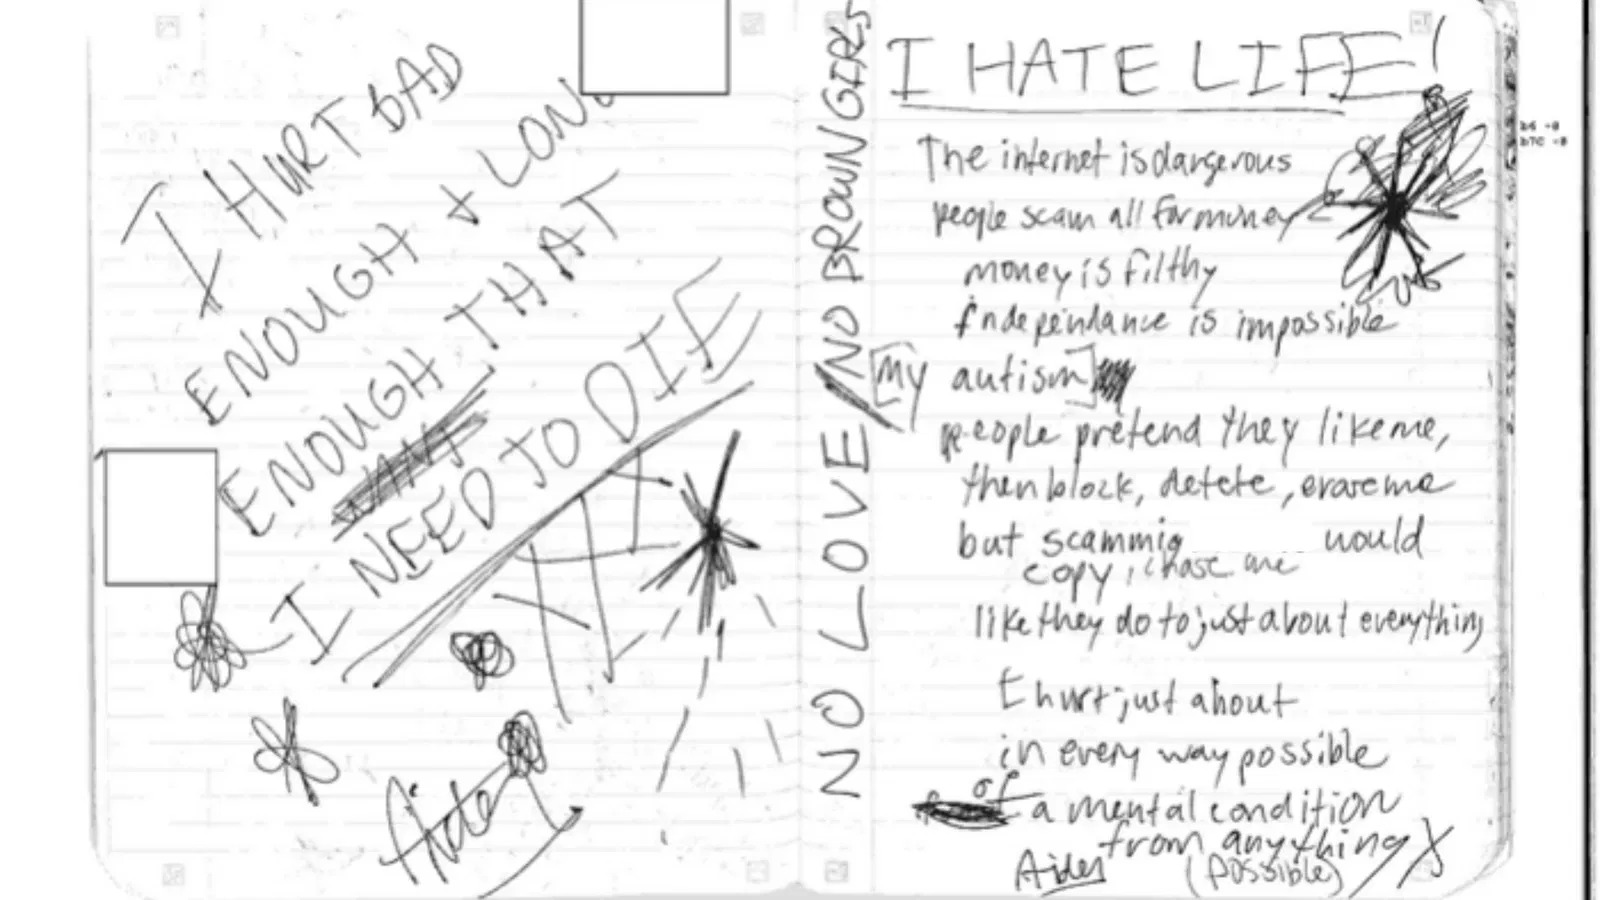 I HURT BAD
ENOUGH + LONG
ENOUGH THAT
I NEED TO DIE
Aiden
NO LOVE / NO BROWN GIRLS
I HATE LIFE!
The internet is dangerous
people scam all for money
money is filthy
Independance is impossible
[My autism]
people pretend they like me,
then block, delete, erase me
but scammig would
copy, chase me
like they do to just about everything
I hurt just about
in every way possible
of
a mental condition
from anything
(possible)
Aiden
b6 -8
b7C -8